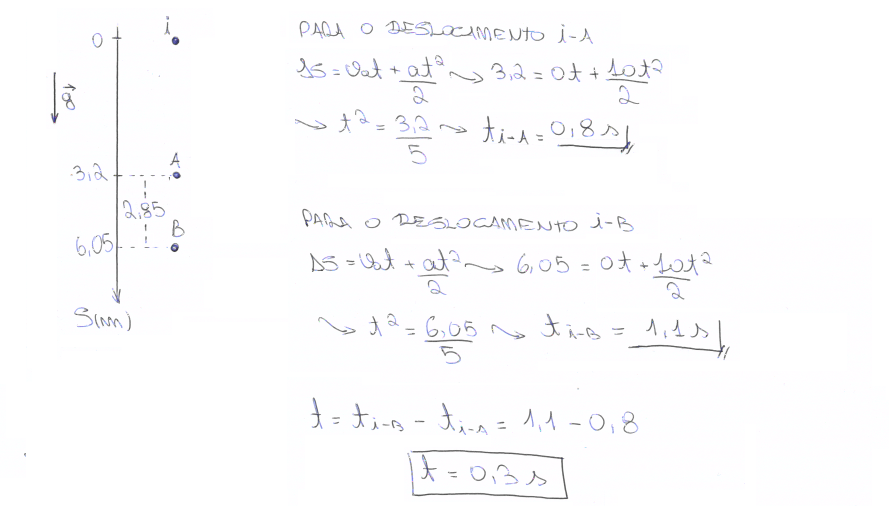 0
i
g
A
3,2
2,85
B
6,05
S(m)
PARA O DESLOCAMENTO i-A
ΔS = v₀t + at²/2 ⤳ 3,2 = 0t + 10t²/2
⤳ t² = 3,2/5 ⤳ t i-A = 0,8 s
PARA O DESLOCAMENTO i-B
ΔS = v₀t + at²/2 ⤳ 6,05 = 0t + 10t²/2
⤳ t² = 6,05/5 ⤳ t i-B = 1,1 s
t = t i-B - t i-A = 1,1 - 0,8
t = 0,3 s